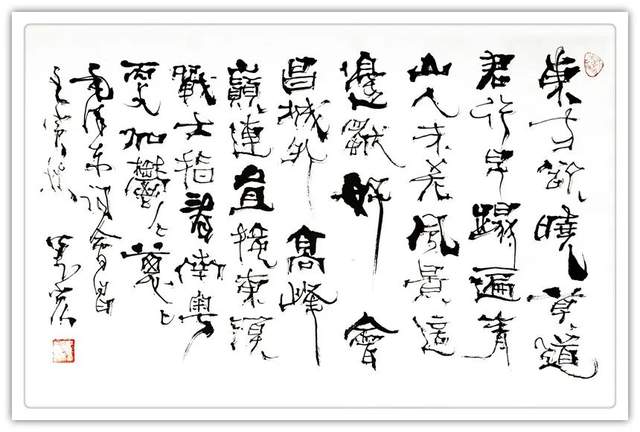 東方欲曉莫道
君行早蹋遍青
山人未老風景這
邊獨好會
昌城外高峰
巔連直接東溟
戰士指看南粵
更加鬱々蔥々
毛澤東詞會昌